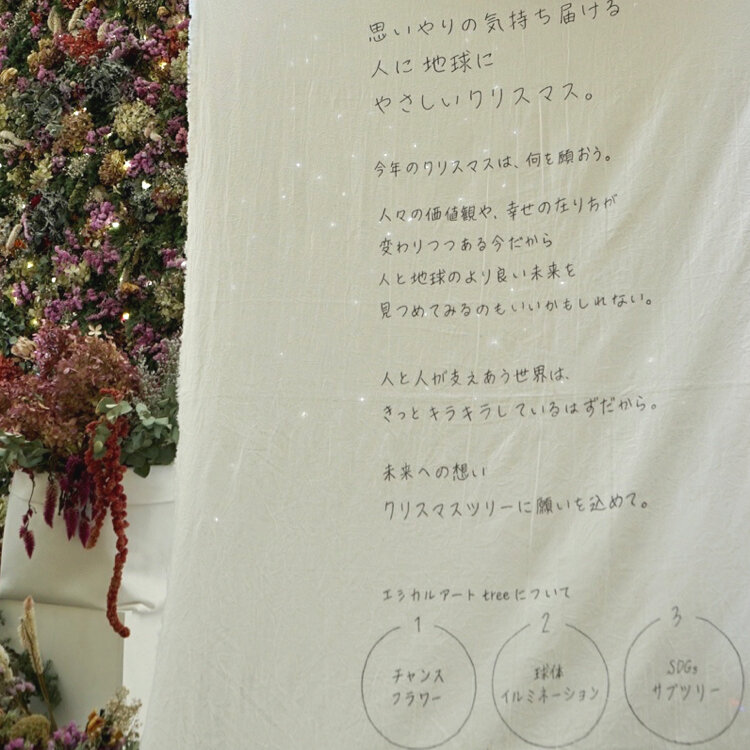 思いやりの気持ち届ける
人に地球に
やさしいクリスマス。
今年のクリスマスは、何を願おう。
人々の価値観や、幸せの在り方が
変わりつつある今だから
人と地球のより良い未来を
見つめてみるのもいいかもしれない。
人と人が支えあう世界は、
きっとキラキラしているはずだから。
未来への想い
クリスマスツリーに願いを込めて。
エシカルアートtreeについて
1
チャンス
フラワー
2
球体
イルミネーション
3
SDGs
サブツリー